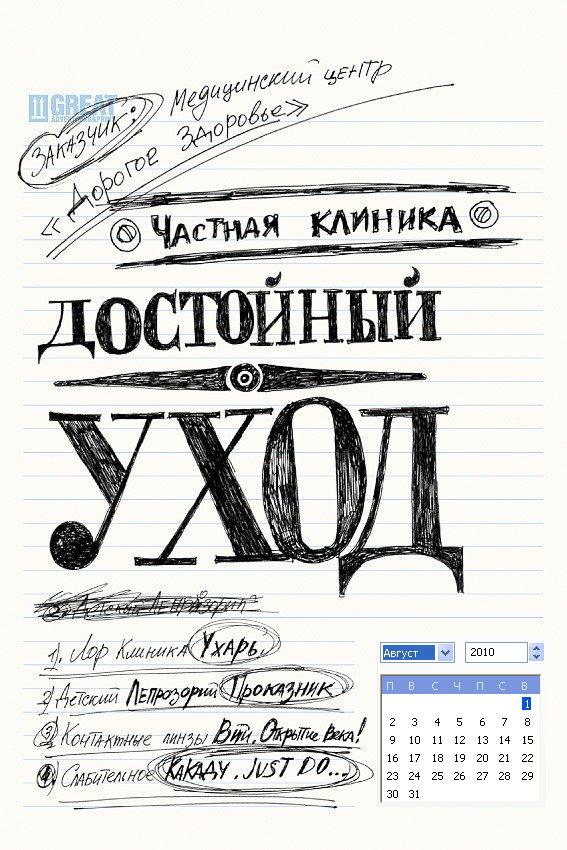 GREAT
ADVERTISING&PRINT
Заказчик: Медицинский центр
«Дорогое Здоровье»
Частная клиника
ДОСТОЙНЫЙ
УХОД
Детский Лепрозорий
1). Лор Клиника Ухарь.
2) Детский Лепрозорий Проказник
3) Контактные линзы Вий. Открытие Века!
4) Слабительное КАКАДУ. JUST DO...
Август 2010
П В С Ч П С В
1
2 3 4 5 6 7 8
9 10 11 12 13 14 15
16 17 18 19 20 21 22
23 24 25 26 27 28 29
30 31